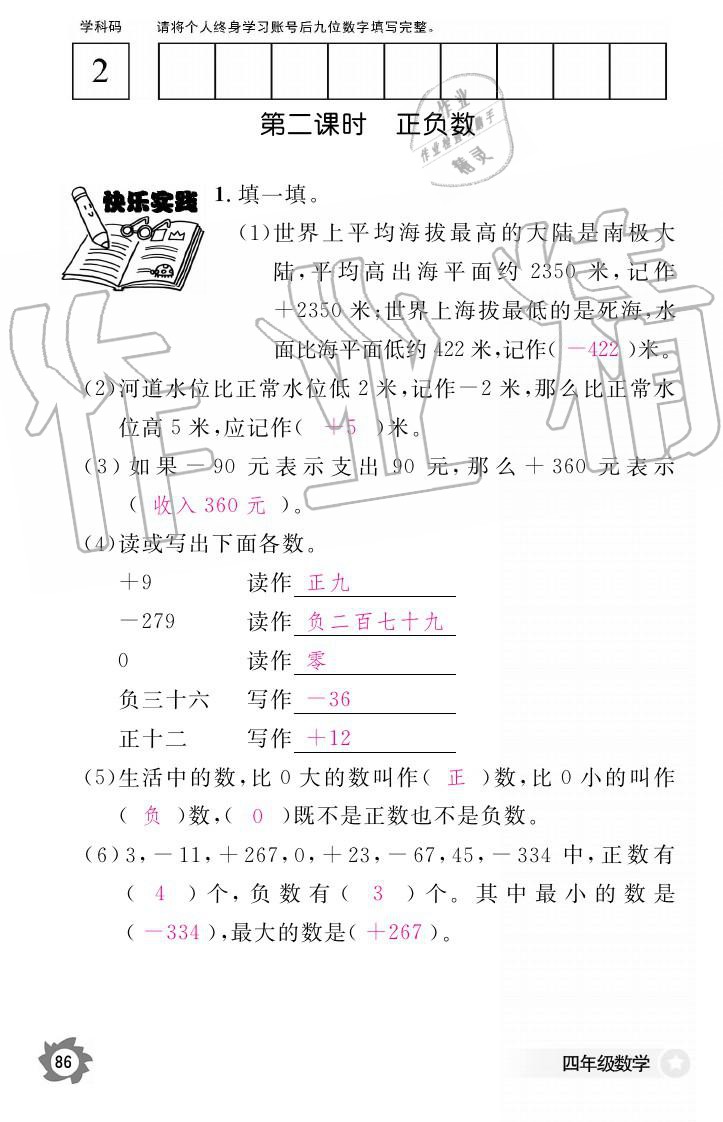 学科码
请将个人终身学习账号后九位数字填写完整。
2
第二课时 正负数
作业
作业检查小助手
精灵
快乐实践
1. 填一填。
(1)世界上平均海拔最高的大陆是南极大
陆,平均高出海平面约 2350 米,记作
+2350 米;世界上海拔最低的是死海,水
面比海平面低约 422 米,记作( -422 )米。
(2)河道水位比正常水位低 2 米,记作-2 米,那么比正常水
位高 5 米,应记作( +5 )米。
(3)如果-90 元表示支出 90 元,那么+360 元表示
( 收入 360 元 )。
(4)读或写出下面各数。
+9 读作 正九
-279 读作 负二百七十九
0 读作 零
负三十六 写作 -36
正十二 写作 +12
(5)生活中的数,比 0 大的数叫作( 正 )数,比 0 小的叫作
( 负 )数,( 0 )既不是正数也不是负数。
(6)3,-11,+267,0,+23,-67,45,-334 中,正数有
( 4 )个,负数有( 3 )个。其中最小的数是
( -334 ),最大的数是( +267 )。
作业精
86
四年级数学